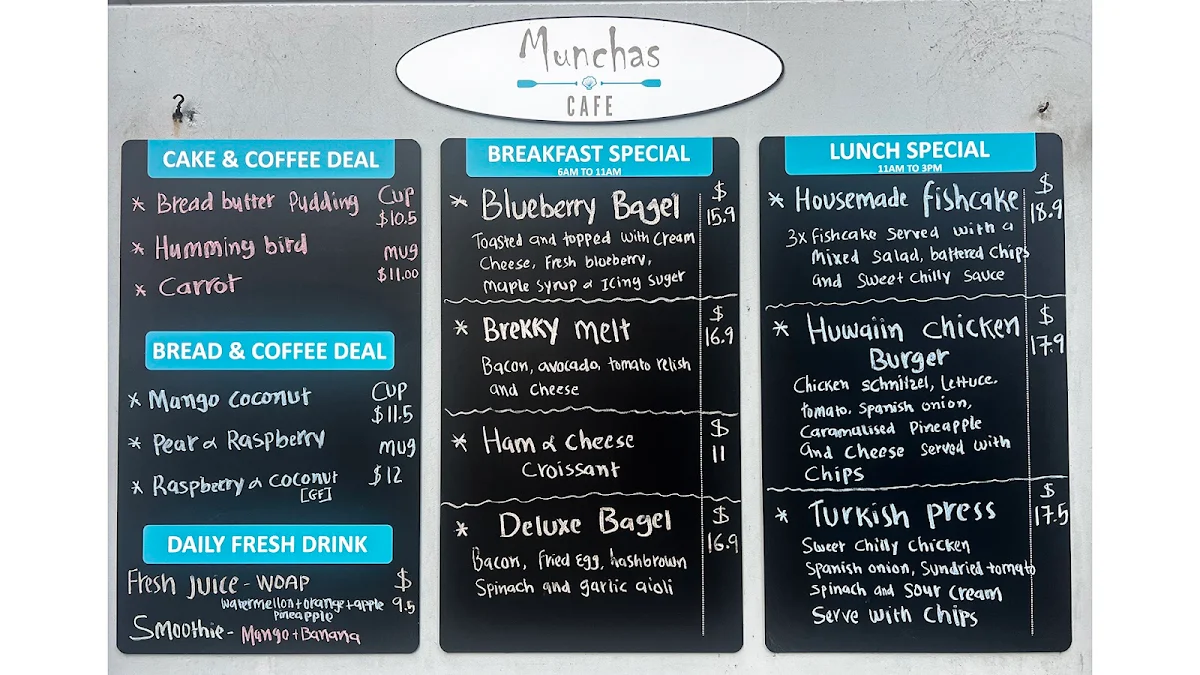 Munchas
CAFE
CAKE & COFFEE DEAL
* Bread butter Pudding Cup
$10.5
* Humming bird mug
$11.00
* Carrot
BREAD & COFFEE DEAL
* Mango coconut Cup
$11.5
* Pear & Raspberry mug
* Raspberry & coconut $12
[GF]
DAILY FRESH DRINK
Fresh Juice - WOAP $
Watermellon+orange+apple 9.5
Pineapple
Smoothie - Mango+Banana
BREAKFAST SPECIAL
6AM TO 11AM
* Blueberry Bagel $
15.9
Toasted and topped with Cream
Cheese, Fresh blueberry,
Maple Syrup & Icing Suger
* Brekky melt $
16.9
Bacon, avocado, tomato relish
and Cheese
* Ham & Cheese $
11
Croissant
* Deluxe Bagel $
16.9
Bacon, Fried Egg, hashbrown
Spinach and garlic aioli
LUNCH SPECIAL
11AM TO 3PM
* Housemade fishcake $
18.9
3x Fishcake Served with a
Mixed Salad, battered Chips
and Sweet Chilly Sauce
* Huwaiin Chicken $
17.9
Burger
Chicken Schnitzel, Lettuce,
tomato, Spanish onion,
Caramalised Pineapple
and Cheese Served with
Chips
* Turkish press $
17.5
Sweet Chilly Chicken
Spanish onion, Sundried tomato
Spinach and Sour Cream
Serve with Chips